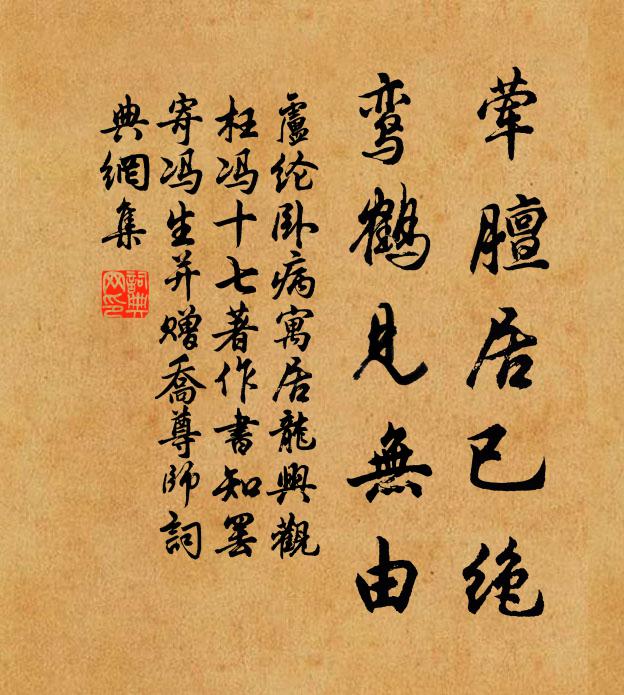 荤膻居已绝
鸾鶴見無由
盧纶卧病寓居龍興觀
枉冯十七著作書知罢
寄冯生并赠喬尊師詞
典網集
詞典
网印